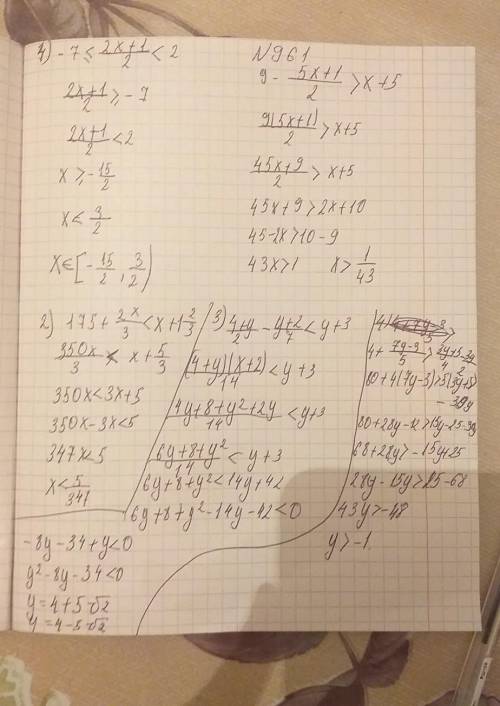 4) -7 ≤ (2x+1)/2 < 2
(2x+1)/2 ≥ -7
(2x+1)/2 < 2
x ≥ -15/2
x < 3/2
x ∈ [-15/2, 3/2)
N961
9 - (5x+1)/2 > x+5
9(5x+1)/2 > x+5
(45x+9)/2 > x+5
45x+9 > 2x+10
45-2x > 10-9
43x > 1 x > 1/43
2) 175 + 2x/3 < x+1 2/3
350x/3 < x + 5/3
350x < 3x+5
350x - 3x < 5
347x < 5
x < 5/347
3) (4+y)/2 - (y+2)/7 < y+3
(4+y)(x+2)/14 < y+3
(4y+8+y²+2y)/14 < y+3
(6y+8+y²)/14 < y+3
6y+8+y² < 14y+42
6y+8+y²-14y-42 < 0
-8y-34+y < 0
y²-8y-34 < 0
y = 4+5√2
y = 4-5√2
4)
4 + (7y-3)/5 >
80+28y-12 > 15y-25-39
68+28y > -15y+25
28y-15y > 25-68
43y > -43
y > -1